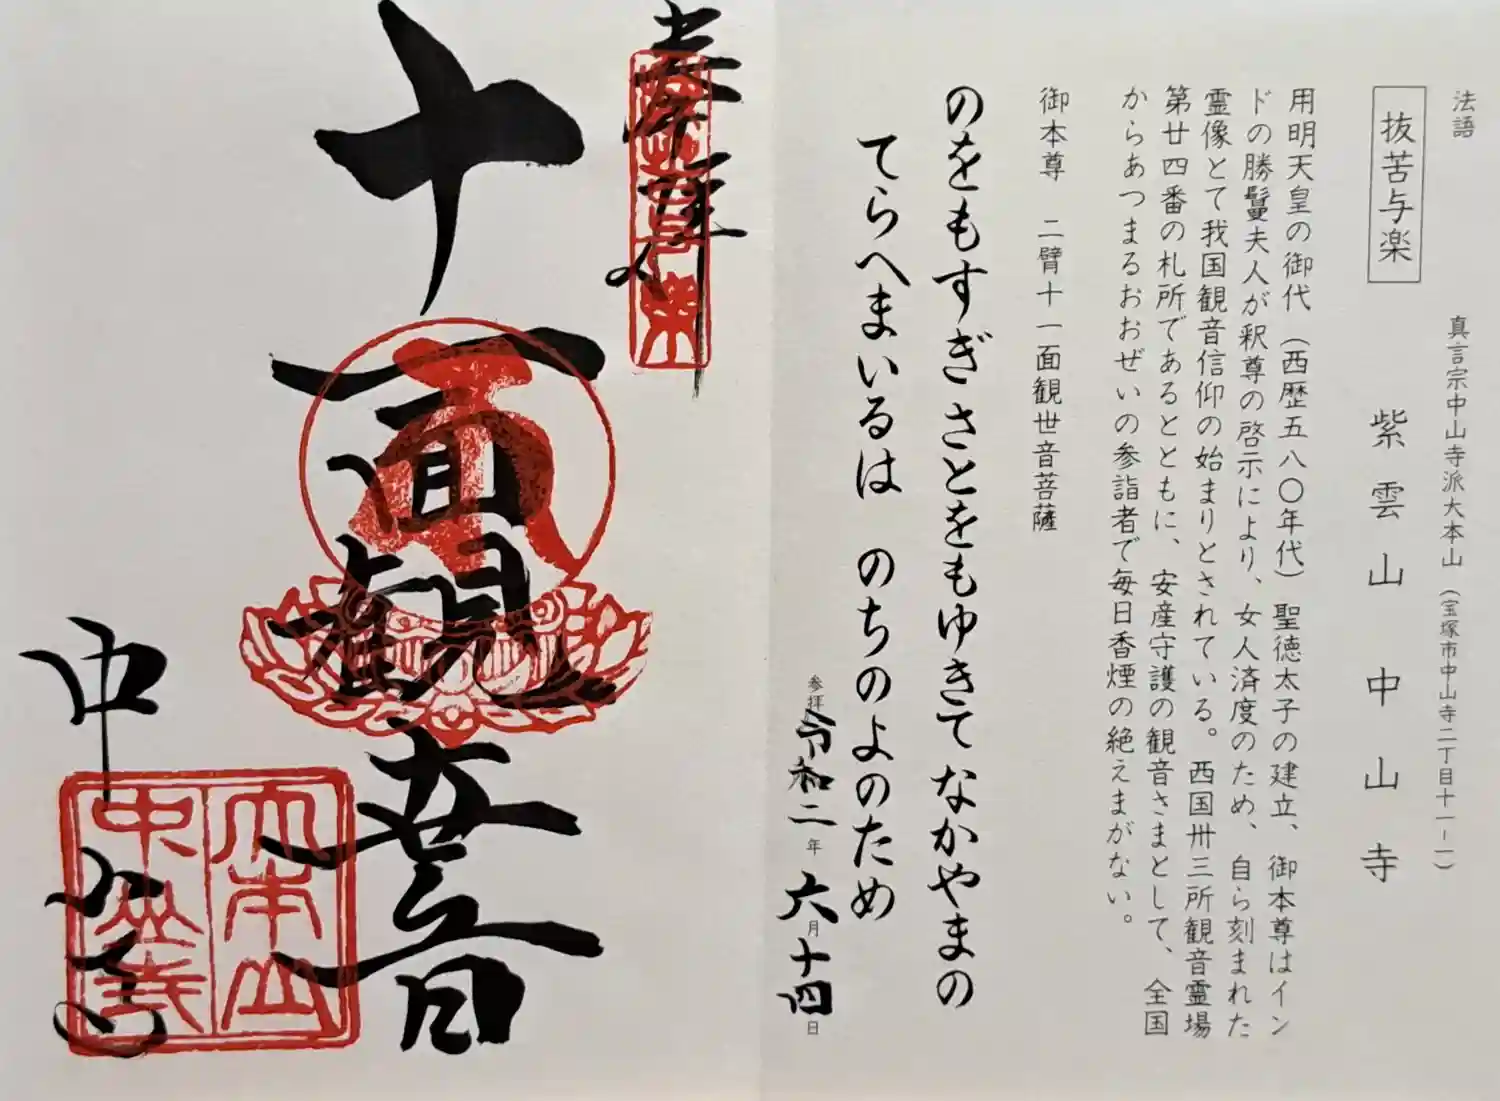 法語
抜苦与楽
真言宗中山寺派大本山(宝塚市中山寺二丁目十一ー一)
紫雲山中山寺
用明天皇の御代(西歴五八〇年代)聖徳太子の建立、御本尊はイン
ドの勝鬘夫人が釈尊の啓示により、女人済度のため、自ら刻まれた
霊像とて我国観音信仰の始まりとされている。西国卅三所観音霊場
第廿四番の札所であるとともに、安産守護の観音さまとして、全国
からあつまるおおぜいの参詣者で毎日香煙の絶えまがない。
御本尊 二臂十一面観世音菩薩
のをもすぎさとをもゆきてなかやまの
てらへまいるは のちのよのため
参拝 令和二年六月十四日
奉拝
抜苦与楽
十一面観世音
中山寺
大本山
中山寺